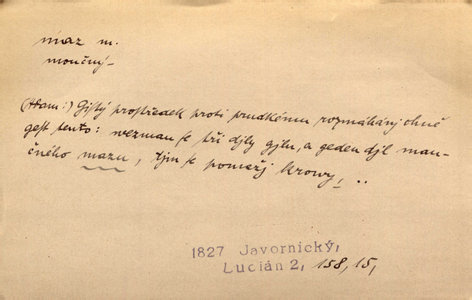 maz m.
moučný-
(Ham:) Gistý prostředek proti prudkému rozmáhánj ohně
gest tento: wezmau se tři djly gjlu, a geden djl mau-
čného mazu, tjm se pomažj krowy, ..
1827 Javornický,
Lucián 2, 158, 15,